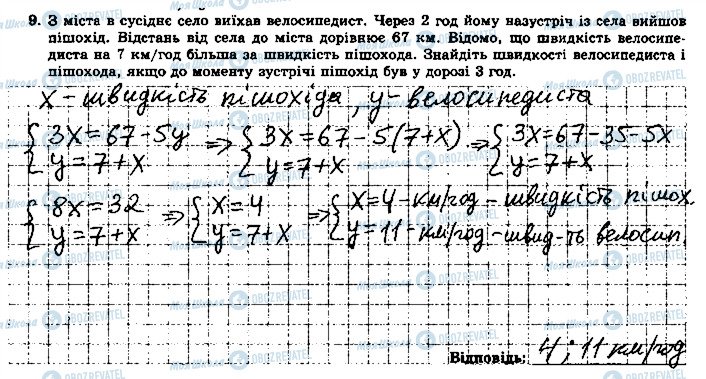 9. З міста в сусіднє село виїхав велосипедист. Через 2 год йому назустріч із села вийшов
пішохід. Відстань від села до міста дорівнює 67 км. Відомо, що швидкість велосипе-
диста на 7 км/год більша за швидкість пішохода. Знайдіть швидкості велосипедиста і
пішохода, якщо до моменту зустрічі пішохід був у дорозі 3 год.
x - швидкість пішохіда, y - велосипедиста
{3x = 67 - 5y => {3x = 67 - 5(7 + x) => {3x = 67 - 35 - 5x
{y = 7 + x {y = 7 + x {y = 7 + x
{8x = 32 => {x = 4 => {x = 4 - км/год - швидкість пішох.
{y = 7 + x {y = 7 + x {y = 11 - км/год - швид-ть велосип.
Відповідь: 4; 11 км/год